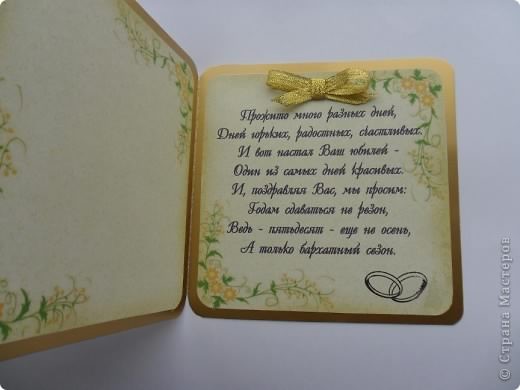 Прожито много разных дней,
Дней горьких, радостных, счастливых.
И вот настал Ваш юбилей -
Один из самых дней красивых.
И, поздравляя Вас, мы просим:
Годам сдаваться не резон,
Ведь - пятьдесят - еще не осень,
А только бархатный сезон.
© Страна Мастеров